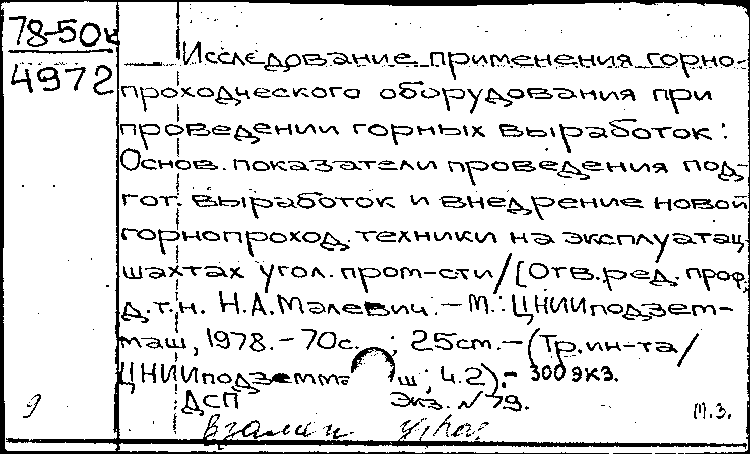 78-50к
4972
Исследование применения горно-
проходческого оборудования при
проведении горных выработок:
Основ. показатели проведения под-
гот. выработок и внедрение новой
горнопроход. техники на эксплуатац.
шахтах угол. пром-сти/[Отв. ред. проф.
д.т.н. Н.А.Малевич. - М.: ЦНИИподзем-
маш, 1978. - 70с. ; 25см. - (Тр. ин-та/
ЦНИИподземма ш; ч.2). - 300 экз.
ДСП Экз. №79.
9 м.з.
взамен